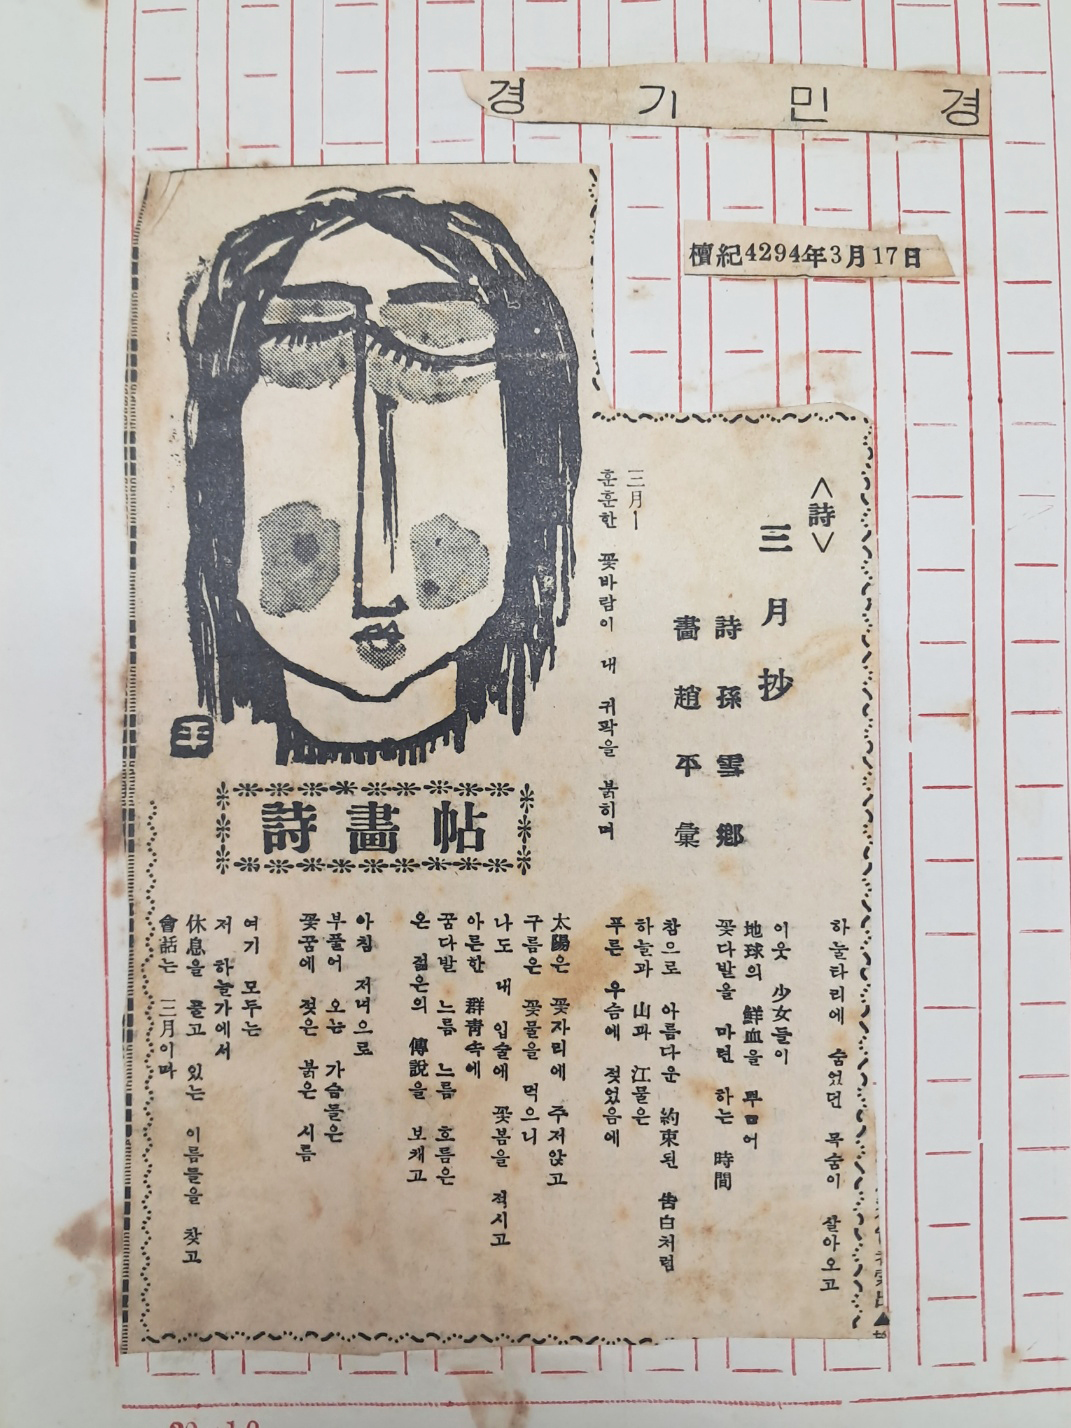 경기민경
檀紀4294年3月17日
<詩>
三月抄
詩 孫雪鄕
畵 趙平彙
三月—
훈훈한 꽃바람이 내 귀곽을 붉히며
詩畵帖
하눌타리에 숨었던 목숨이 살아오고
이웃 少女들이
地球의 鮮血을 뿌어
꽃다발을 마련 하는 時間
참으로 아름다운 約束된 告白처럼
하늘과 山과 江물은
푸른 우슴에 젖었음에
太陽은 꽃자리에 주저앉고
구름은 꽃물을 먹으니
나도 내 입술에 꽃봄을 적시고
아른한 群靑속에
꿈다발 느름 느름 흐름은
온 젊은의 傳說을 보캐고
아침 저녁으로
부풀어 오는 가슴들은
꽃꿈에 젖은 붉은 시름
여기 모두는
저 하늘가에서
休息을 풀고 있는 이름들을 찾고
會話는 三月이라